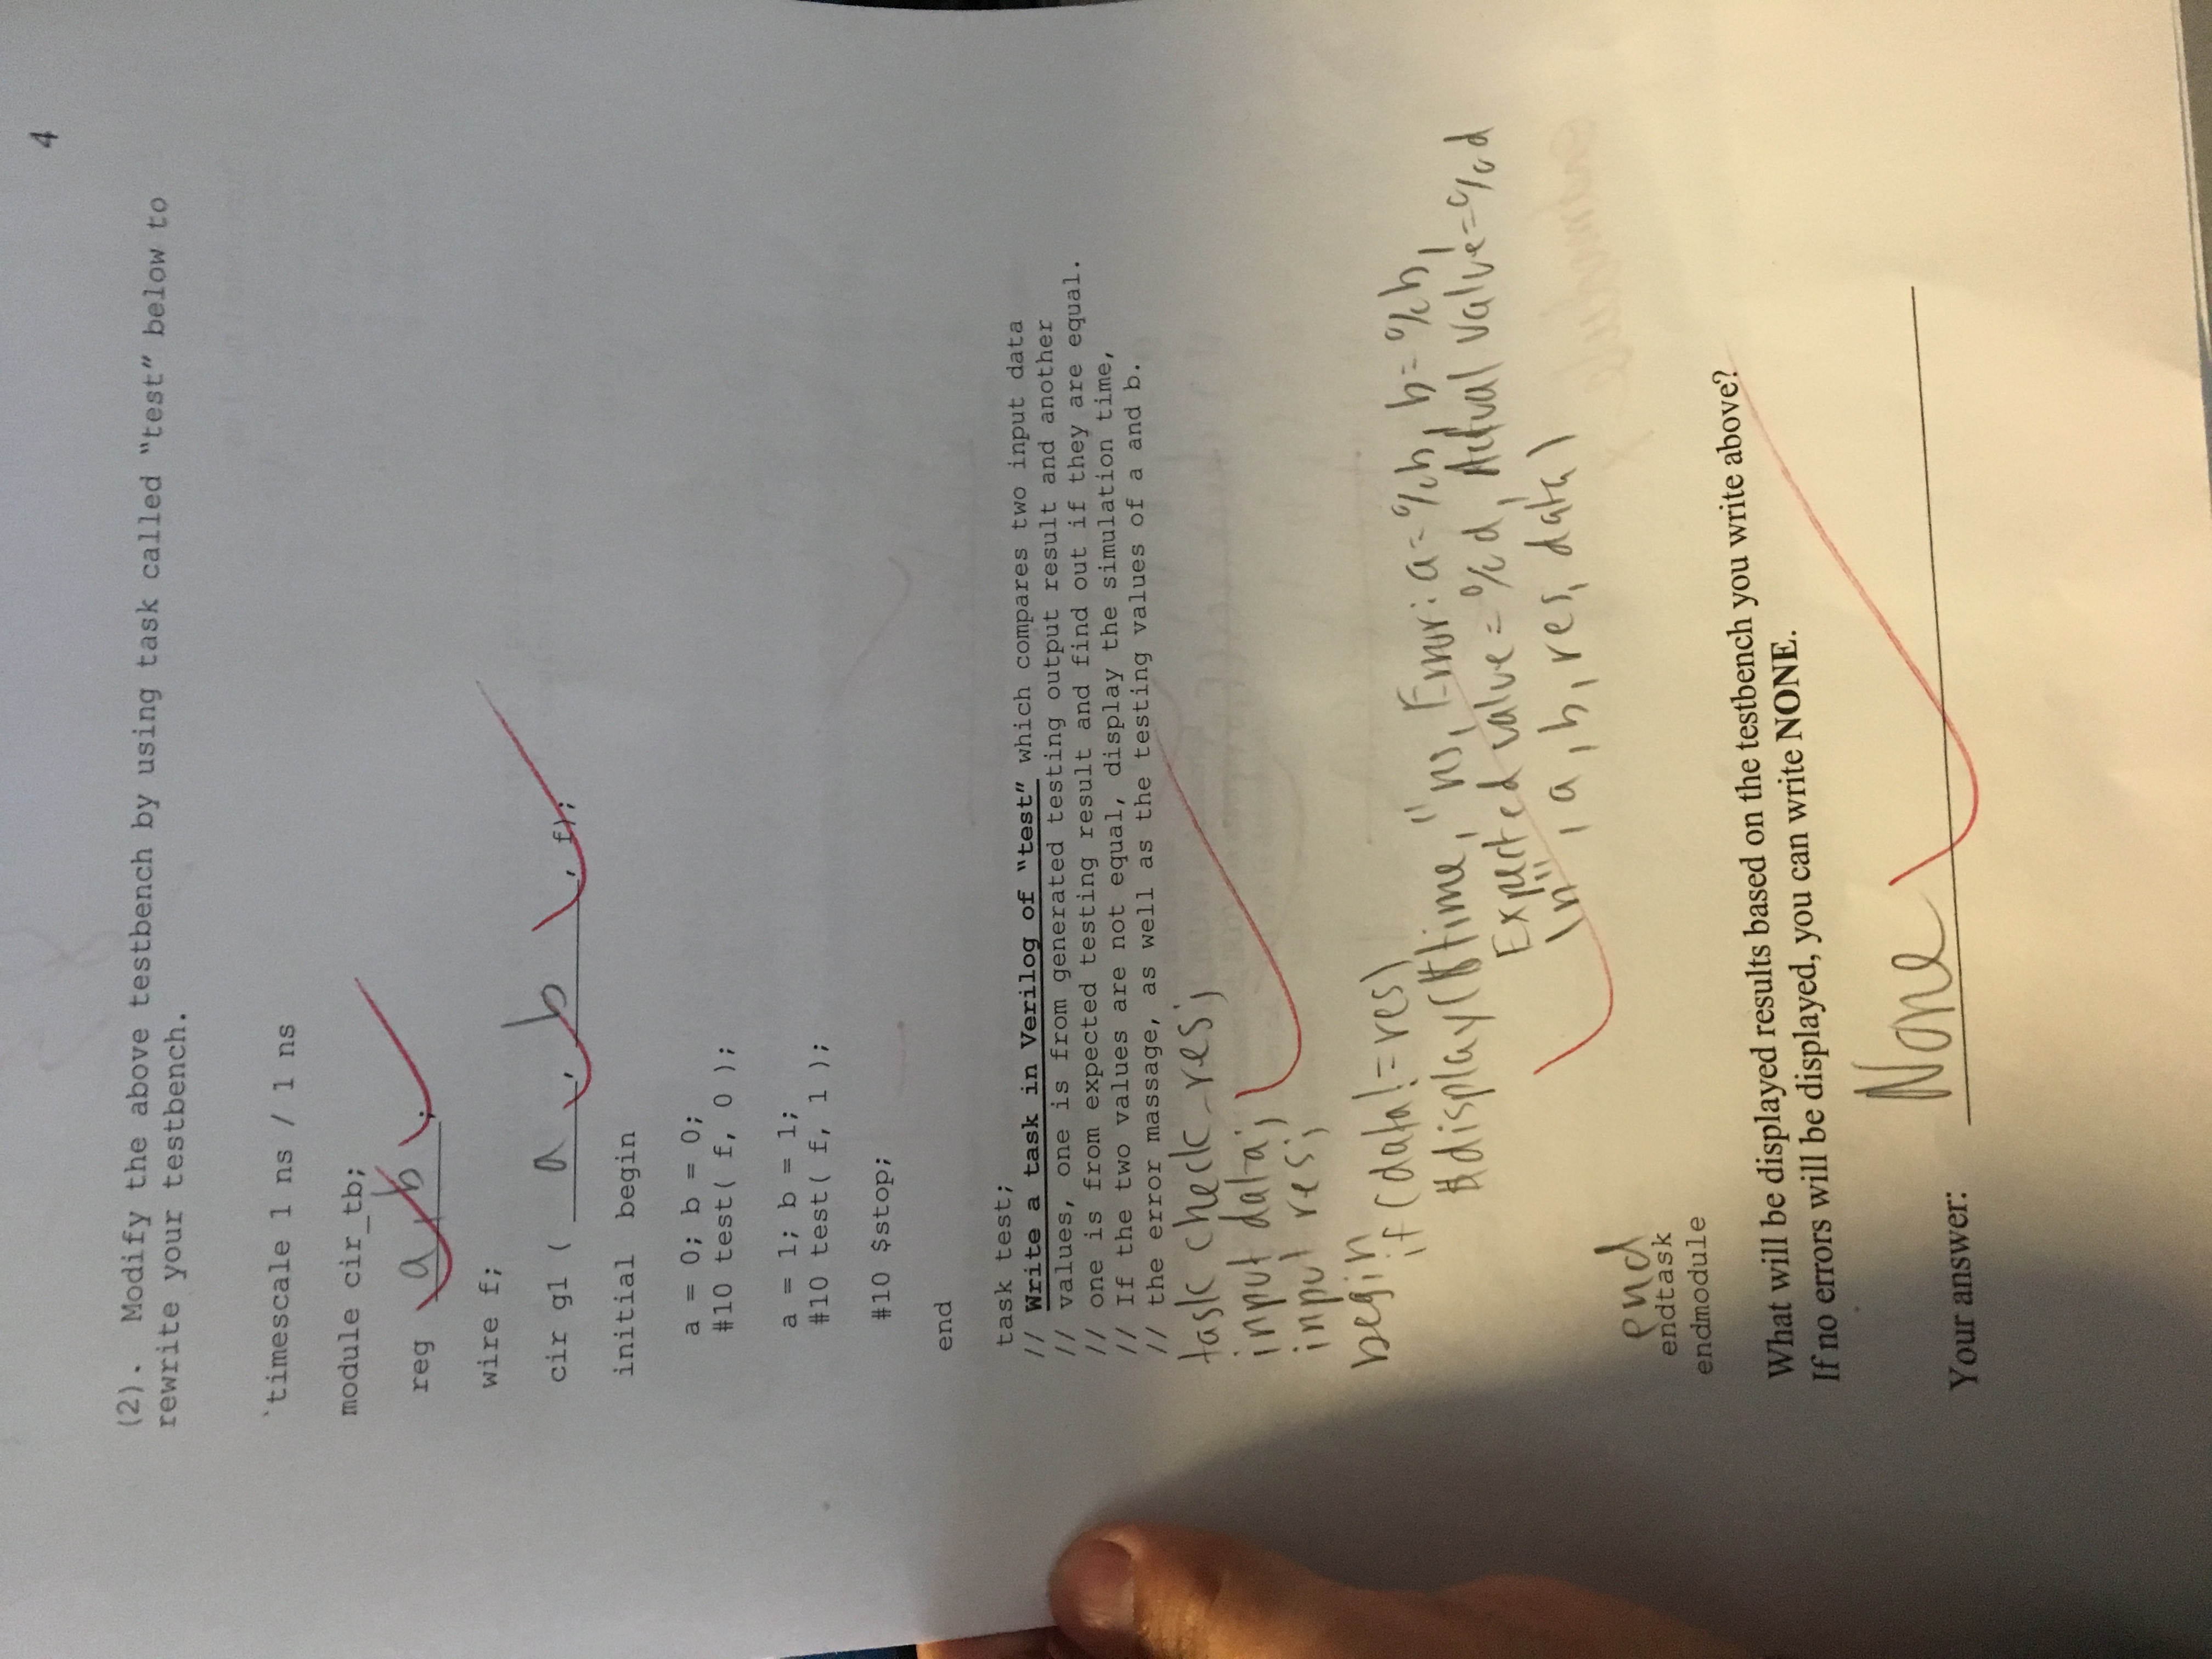 4
(2). Modify the above testbench by using task called "test" below to
rewrite your testbench.
`timescale 1 ns / 1 ns
module cir_tb;
reg a, b ;
wire f;
cir g1 ( a , b , f);
initial begin
a = 0; b = 0;
#10 test( f, 0 );
a = 1; b = 1;
#10 test( f, 1 );
#10 $stop;
end
task test;
// Write a task in Verilog of "test" which compares two input data
// values, one is from generated testing output result and another
// one is from expected testing result and find out if they are equal.
// If the two values are not equal, display the simulation time,
// the error massage, as well as the testing values of a and b.
task check_res;
input data;
input res;
begin
if (data!=res)
$display($time, "ns, Error: a=%b, b=%b,
Expected value=%d, Actual value=%d
\n", a, b, res, data)
end
endtask
endmodule
What will be displayed results based on the testbench you write above?
If no errors will be displayed, you can write NONE.
None
Your answer: